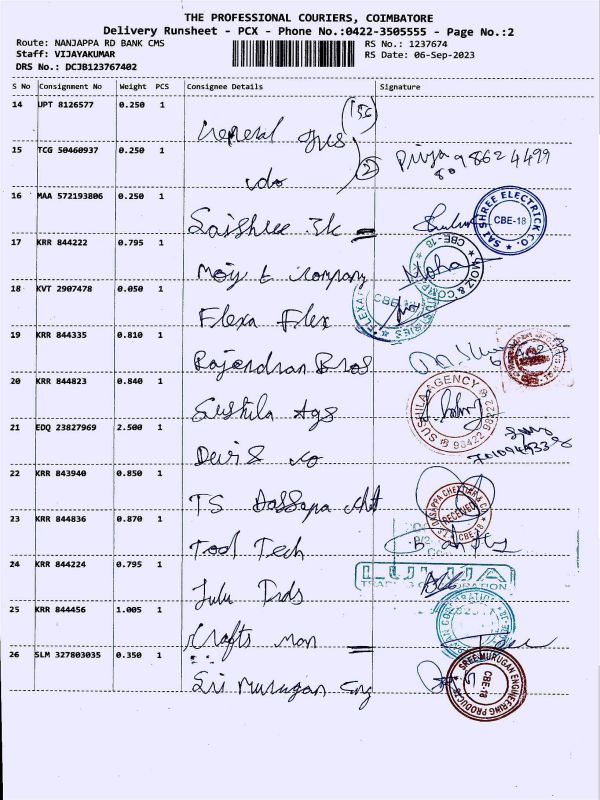 THE PROFESSIONAL COURIERS, COIMBATORE
Delivery Runsheet - PCX - Phone No.:0422-3505555 - Page No.:2
Route: NANJAPPA RD BANK CMS
RS No.: 1237674
Staff: VIJAYAKUMAR
RS Date: 06-Sep-2023
DRS No.: DCJB123767402
S No Consignment No Weight PCS Consignee Details Signature
14 UPT 8126577 0.250 1
General
15 TCG 50460937 0.250 1
Priya 98624499
80
16 MAA 572193806 0.250 1
Saishree
SAI SHREE ELECTRICK CO. CBE-18
17 KRR 844222 0.795 1
Moiz & Company
Moha
MOIZ & COMPANY CBE-18
18 KVT 2907478 0.050 1
Flexa Flex
FLEXA INDUSTRIES CBE
19 KRR 844335 0.810 1
Rajendran Bros
20 KRR 844823 0.840 1
Sushila Ags
SUSHILA AGENCY 90422 90422
21 EDQ 23827969 2.500 1
Devi & Co
22 KRR 843940 0.850 1
TS Dassapa Chet
T.S. DASAPPA CHETTIAR & CO. RECEIVED CBE-18
23 KRR 844836 0.870 1
Tool Tech
24 KRR 844224 0.795 1
Lulu Trds
TRADING CORPORATION
25 KRR 844456 1.005 1
Crafts man
26 SLM 327803035 0.350 1
Sri Murugan Eng
SREE MURUGAN ENGINEERING PRODUCTS CBE-18